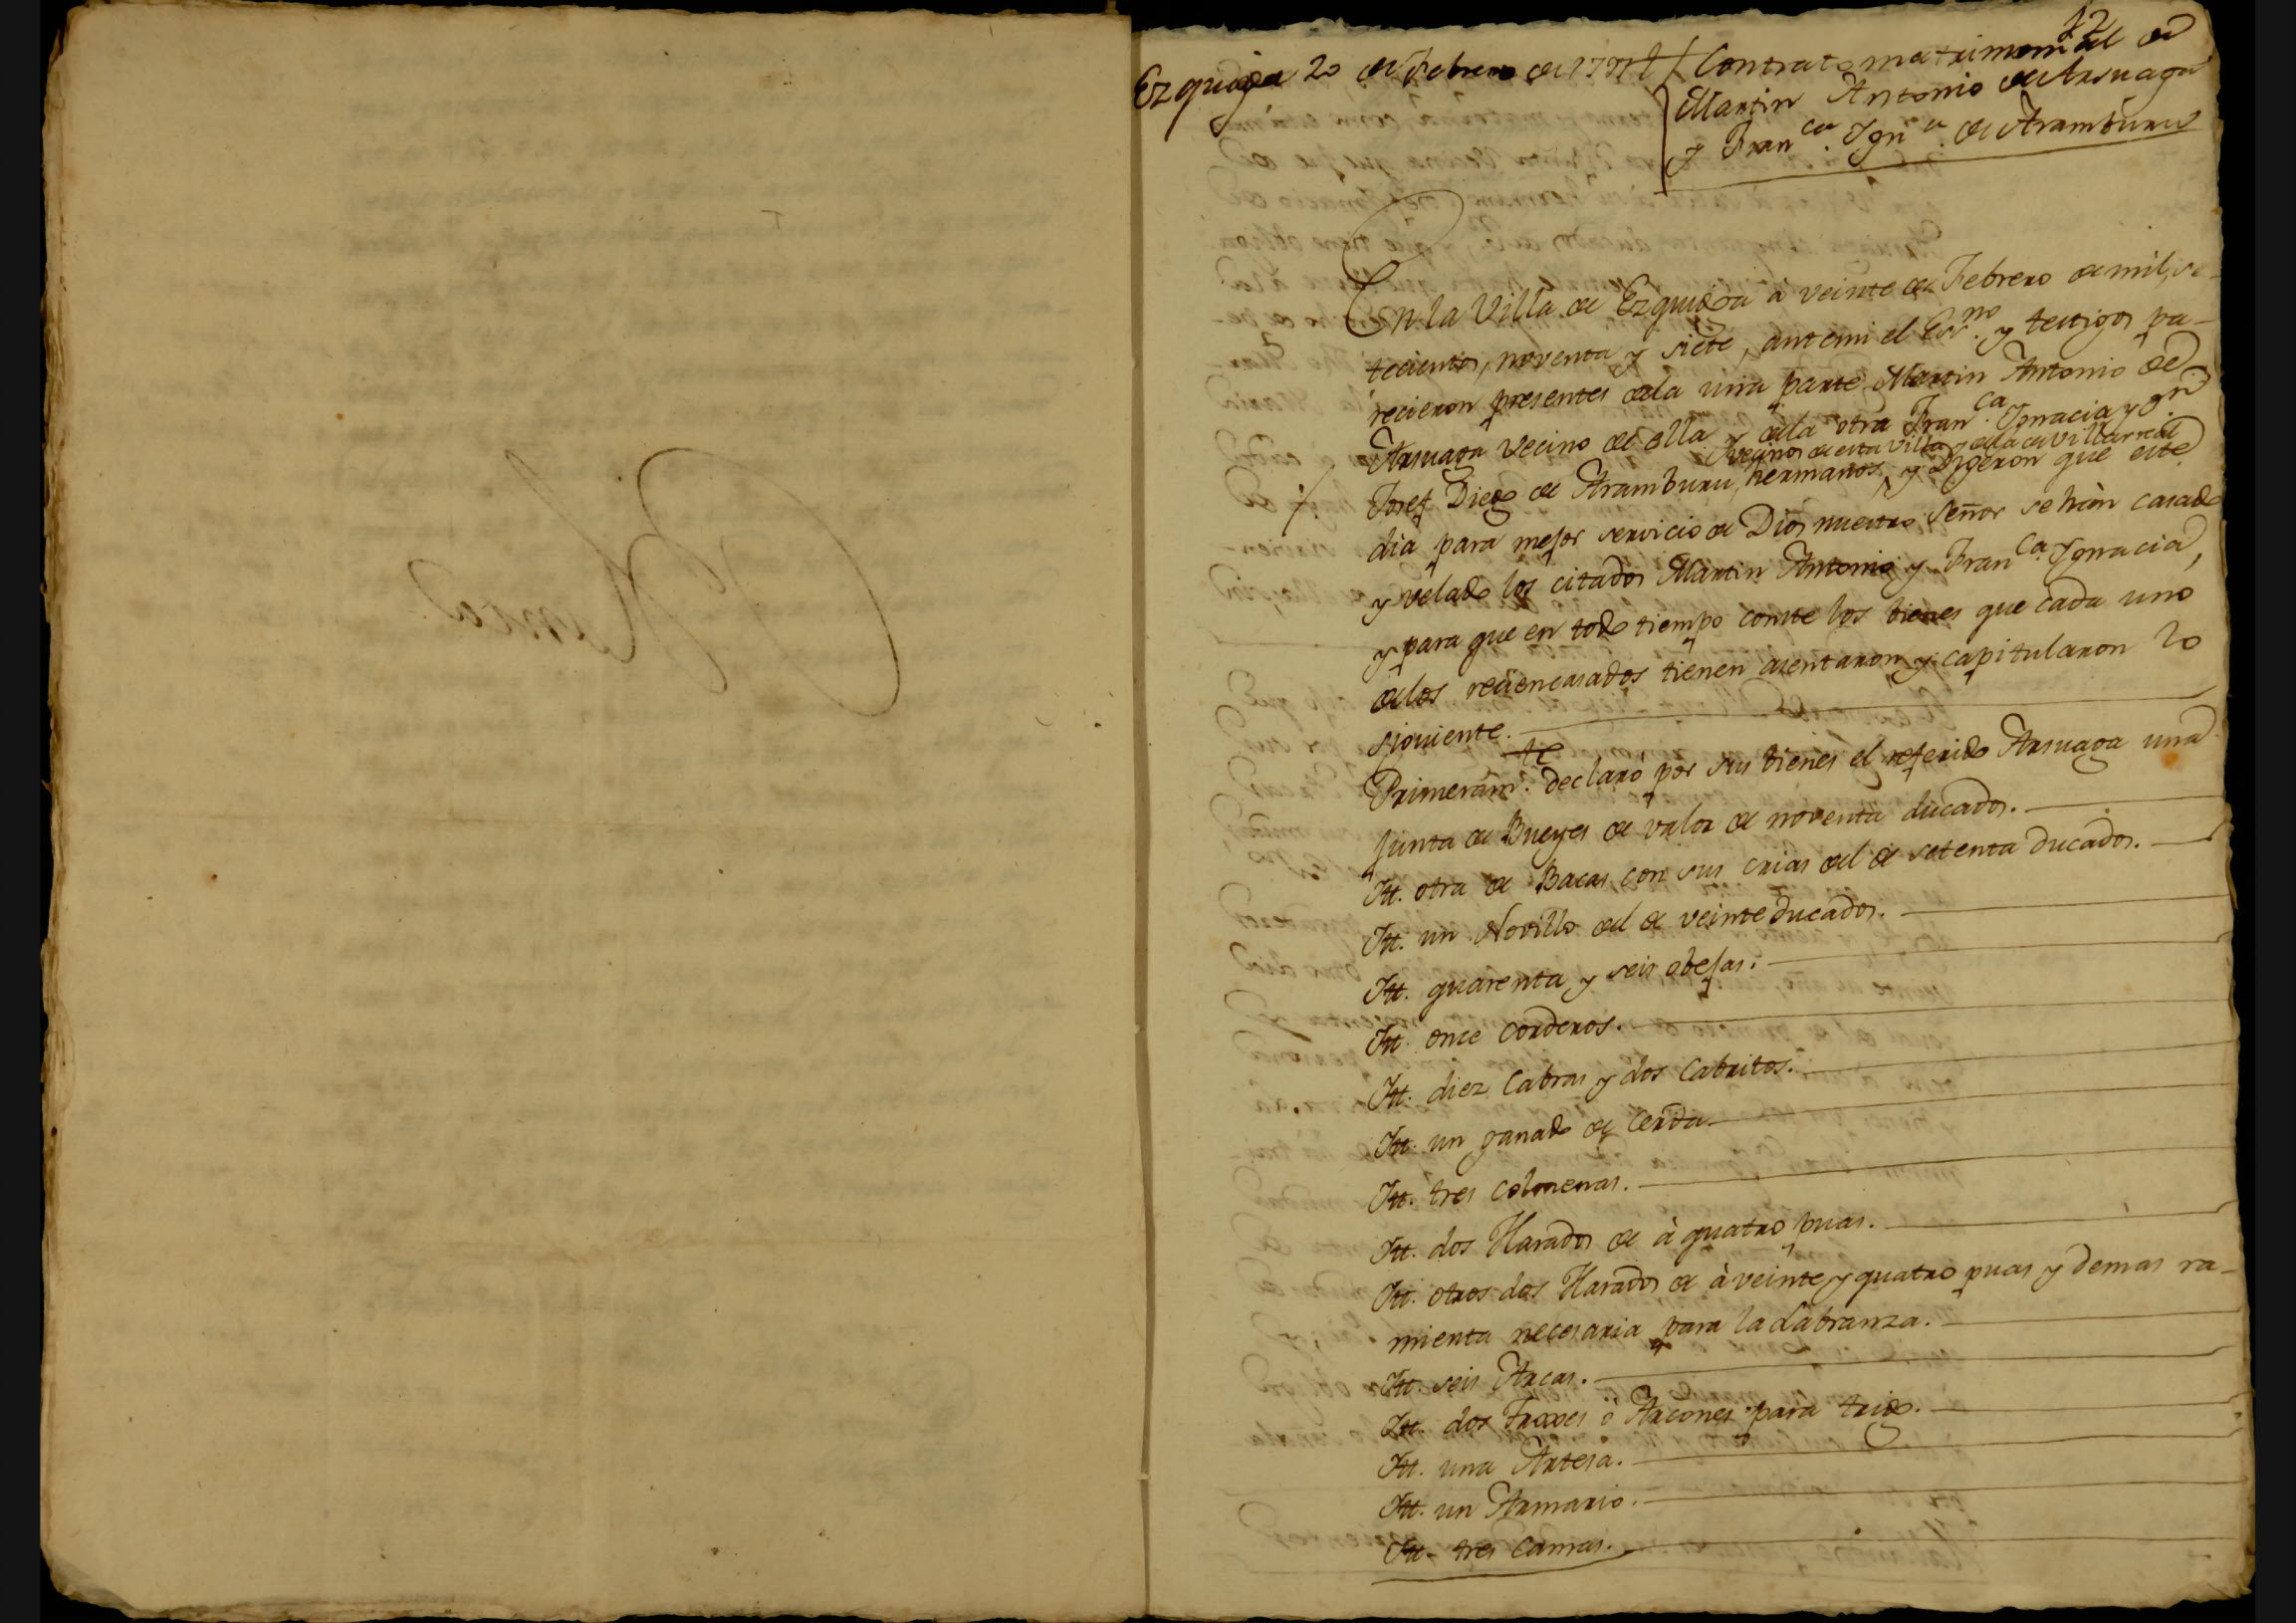 12
Ezquioga 20 de Febrero de 1797 / Contrato matrimonial de
Martin Antonio de Arsuaga
y Fran.ca Ign.a de Aramburu
En la Villa de Ezquioga à veinte de Febrero de mil, se-
tecientos, noventa y siete, ante mi el Ess.no y testigos pa-
recieron presentes dela una parte Martin Antonio de
Arsuaga Vecino de ella y dela otra Fran.ca Ignacia y
Josef Diego de Aramburu, hermanos, y Digeron que este
vecinos de esta villa y dela de Villarreal
dia para mejor servicio de Dios nuestro Señor se hàn casado
y velado los citados Martin Antonio y Fran.ca Ignacia,
y para que en todo tiempo conste los bienes que cada uno
delos reciencasados tienen asentaron y capitularon lo
siguiente.
Primeram.te declarò por sus bienes el referido Arsuaga una
Junta de Bueyes de valor de noventa ducados.
Itt. otra de Bacas con sus crias del de setenta ducados.
Itt. un Novillo del de veinte ducados.
Itt. quarenta y seis obejas.
Itt. once corderos.
Itt. diez Cabras y dos Cabritos.
Itt. un ganado de Cerda.
Itt. tres colmenas.
Itt. dos Harados de à quatro puas.
Itt. otros dos Harados de à veinte y quatro puas y demas ra-
mienta necesaria para la Labranza.
Itt. seis Arcas.
Itt. dos Troxes ò Arcones para trigo.
Itt. una Artesa.
Itt. un Armario.
Itt. tres Camas.